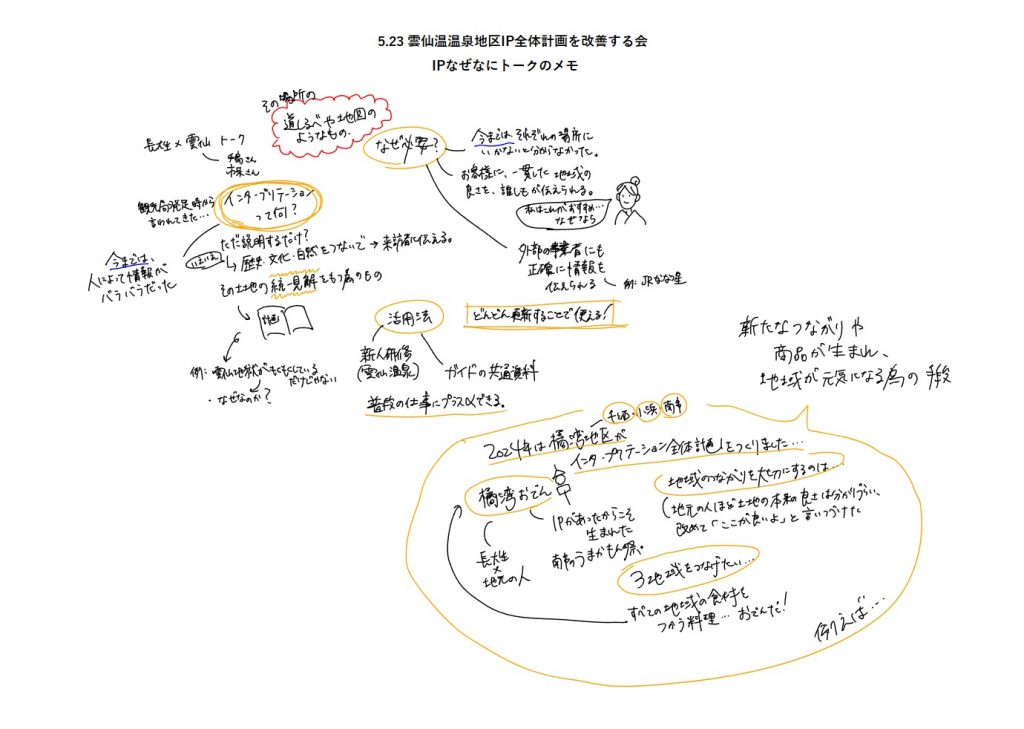 5.23 雲仙温温泉地区IP全体計画を改善する会
IPなぜなにトークのメモ
その場所の
道しるべや地図の
ようなもの.
長大生×雲仙 トーク
観光局発足時から
言われてきた…
インタープリテーション
って何?
今までは、
人によって情報が
バラバラだった
ただ説明するだけ?
いまいは
↳ 歴史・文化・自然をつないで → 来訪者に伝える。
その土地の統一見解をもつ為のもの
計画
例: 雲仙地獄がもくもくしている
だけじゃない
・なぜなのか?
なぜ必要?
今までは それぞれの場所に
いかないと分からなかった。
お客様に、一貫した 地域の
良さを、誰しもが伝えられる。
私はこれがおすすめ…
なぜなら
外部の事業者にも
正確に情報を
伝えられる
例: JRななつ星
活用法
どんどん更新することで使える!
新人研修
(雲仙温泉)
ガイドの共通資料
普段の仕事にプラスαできる。
新たなつながりや
商品が生まれ、
地域が元気になる為の手段
千々石・小浜・南串
2024年は橘湾地区が
「インタープリテーション全体計画」をつくりました…
橘湾おでん
長大生
×
地元の人
IPがあったからこそ
生まれた
南串のうまかもん祭。
地域のつながりを大切にするのは…
(地元の人ほど土地の本来の良さは分かりづらい、
改めて「ここが良いよ」と言いつづけた
3地域をつなげたい…
すべての地域の食材を
つかう料理… おでんだ!
例えば…